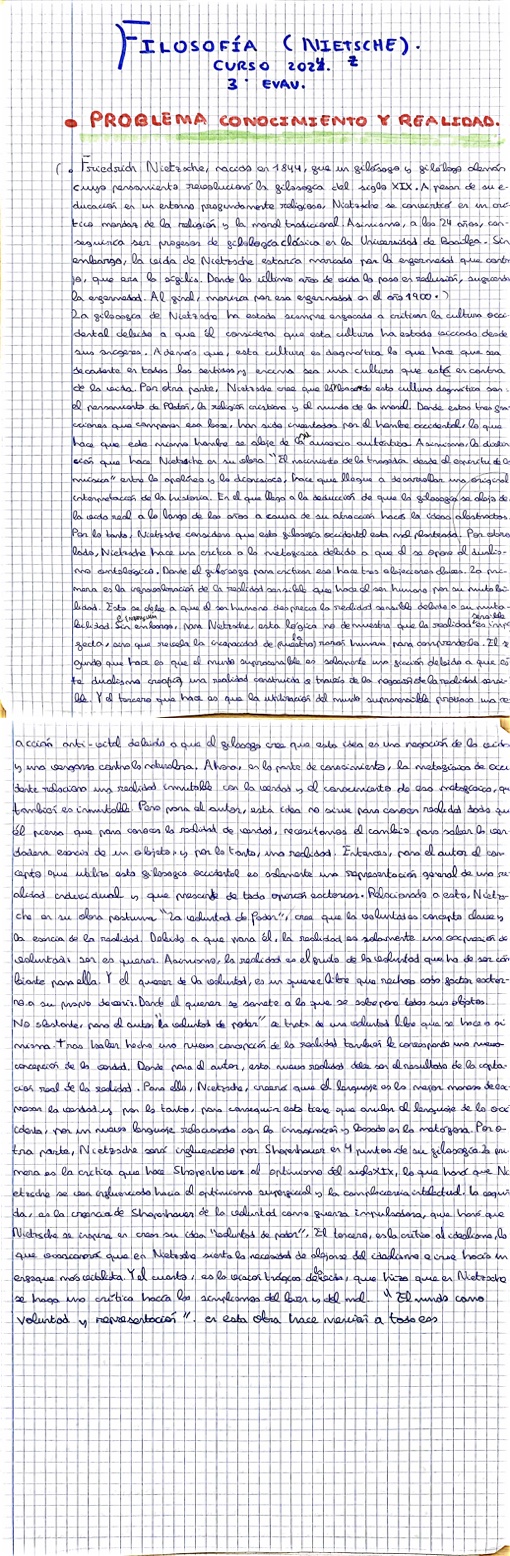 FILOSOFÍA (NIETSCHE).
CURSO 2024. 2
3º EVAU.
• PROBLEMA CONOCIMIENTO Y REALIDAD.
(• Friedrich Nietzsche, nacido en 1844, que un filósofo y filólogo alemán
cuyo pensamiento revolucionó la filosofía del siglo XIX. A pesar de su e-
ducación en un entorno profundamente religioso, Nietzsche se convirtió en un crí-
tico mordaz de la religión y la moral tradicional. Asimismo, a los 24 años, con-
seguirá ser profesor de filología clásica en la Universidad de Basilea. Sin
embargo, la vida de Nietzsche estaría marcada por la enfermedad que contra-
jo, que era la sífilis. Donde los últimos años de vida lo pasó en reclusión, sufriendo
la enfermedad. Al final, moriría por esa enfermedad en el año 1900.)
La filosofía de Nietzsche ha estado siempre enfocada a criticar la cultura occi-
dental debido a que él considera que esta cultura ha estado viciada desde
sus orígenes. Además que, esta cultura es dogmática lo que hace que sea
decadente en todos los sentidos y encima sea una cultura que esté en contra
de la vida. Por otra parte, Nietzsche cree que esta cultura dogmática son:
el pensamiento de Platón, la religión cristiana y el mundo de la moral. Donde estas tres fra-
cciones que componen esa base, han sido inventadas por el hombre occidental, lo que
hace que este mismo hombre se aleje de la existencia auténtica. Asimismo, la distin-
ción que hace Nietzsche en su obra "El nacimiento de la tragedia desde el espíritu de la
música" entre lo apolíneo y lo dionisíaco, hace que llegue a desarrollar una original
interpretación de la historia. En el que llega a la deducción de que la filosofía se aleja de
la vida real a lo largo de los años a causa de su atracción hacia las ideas abstractas.
Por lo tanto, Nietzsche considera que esta filosofía occidental está mal planteada. Por otro
lado, Nietzsche hace una crítica a la metafísica debido a que él se opone al dualis-
mo ontológico. Donde el filósofo para criticar eso hace tres objeciones claves. La pri-
mera es la infravaloración de la realidad sensible que hace el ser humano por su mutabi-
lidad. Esto se debe a que el ser humano desprecia la realidad sensible debido a su muta-
bilidad. Sin embargo, para Nietzsche, esta lógica no demuestra que la realidad sensible es imper-
fecta, sino que revela la incapacidad de la razón humana para comprenderla. El se-
gundo que hace es que el mundo suprasensible es solamente una ficción debido a que es-
te dualismo creaba una realidad construida a través de la negación de la realidad sensi-
ble. Y el tercero que hace es que la utilización del mundo suprasensible provoca una re-
acción anti-vital debido a que el filósofo cree que esta idea es una negación de la vida
y una venganza contra la naturaleza. Ahora, en la parte de conocimiento, la metafísica de occi-
dente relaciona una realidad inmutable con la verdad y el conocimiento de esa metafísica, que
también es inmutable. Pero para el autor, esta idea no sirve para conocer realidad dado que
él piensa que para conocer la realidad de verdad, necesitamos el cambio para saber la ver-
dadera esencia de un objeto, y por lo tanto, una realidad. Entonces, para el autor el con-
cepto que utiliza esta filosofía occidental es solamente una representación general de una re-
alidad individual y que prescinde de todo aporte exterior. Relacionado a esto, Nietzs-
che en su obra póstuma "La voluntad de Poder", cree que la voluntad es concepto clave y
la esencia de la realidad. Debido a que para él, la realidad es solamente una expresión de
voluntad: ser es querer. Asimismo, la realidad es el fruto de la voluntad que ha de ser cam-
biante para ella. Y el querer de la voluntad, es un querer libre que rechaza cada factor exter-
no a su propio devenir. Donde el querer se somete a lo que se sobrepone todos sus objetos.
No obstante, para el autor "la voluntad de poder" se trata de una voluntad libre que se hace a sí
misma. Tras haber hecho una nueva concepción de la realidad también le corresponde una nueva
concepción de la verdad. Donde para el autor, esta nueva realidad debe ser el resultado de la capta-
ción real de la realidad. Para ello, Nietzsche, creará que el lenguaje es la mejor manera de ex-
presar la verdad y, por lo tanto, para conseguir esto tiene que anular el lenguaje de la occi-
dente, por un nuevo lenguaje relacionado con la imaginación y basado en la metáfora. Por o-
tra parte, Nietzsche será influenciado por Shopenhauer en 4 puntos de su filosofía. La pri-
mera es la crítica que hace Shopenhauer al optimismo del siglo XIX, lo que hará que Ni-
etzsche se vea influenciado hacia el optimismo superficial y la complacencia intelectual. La segun-
da, es la creencia de Shopenhauer de la voluntad como fuerza impulsadora, que hará que
Nietzsche se inspire en crear su idea "voluntad de poder". El tercero, es la crítica al idealismo, lo
que ocasionará que en Nietzsche sienta la necesidad de alejarse del idealismo e irse hacia un
enfoque más vitalista. Y el cuarto, es la visión trágica de la vida, que hizo que en Nietzsche
se haga una crítica hacia los simplismos del bien y del mal. "El mundo como
voluntad y representación". en esta obra hace mención a todo eso